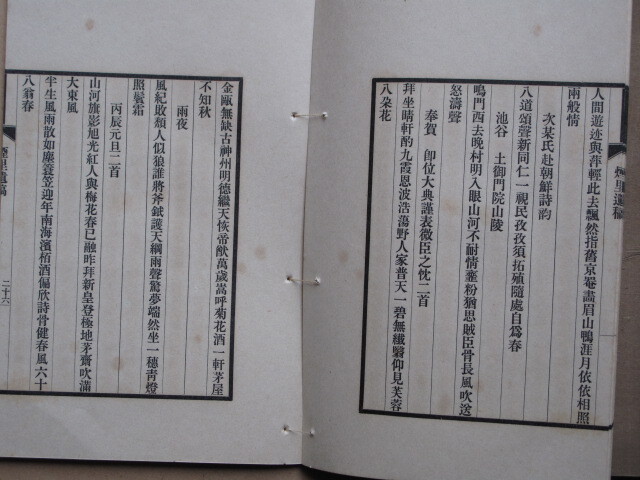 人間遊迹與萍輕此去飄然指舊京罨畫眉山鴨涯月依依相照
兩般情
次某氏赴朝鮮詩韵
八道頌聲新同仁一視民孜孜須拓殖隨處自爲春
池谷　土御門院山陵
鳴門西去晚村明入眼山河不耐情虀粉猶思賊臣骨長風吹送
怒濤聲
奉賀　卽位大典謹表微臣之忱二首
拜坐晴軒酌九霞恩波浩蕩野人家普天一碧無纖翳仰見芙蓉
八朵花
金甌無缺古神州明德繼天恢帝猷萬歲嵩呼菊花酒一軒茅屋
不知秋
雨夜
風紀敗頹人似狼誰將斧鉞護天綱雨聲驚夢端然坐一穗靑燈
照鬢霜
丙辰元旦二首
山河旗影旭光紅人與梅花春已融昨拜新皇登極地茅齋吹滿
大東風
半生風雨散如塵蓑笠迎年南海濱栢酒偏欣詩骨健春風六十
八翁春
里遺稿
二十六